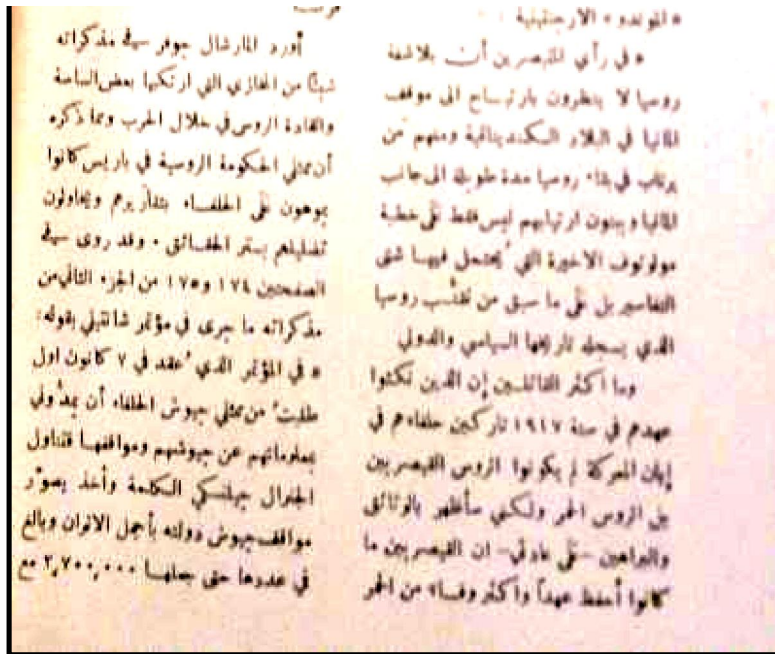 « الموندو » الارجنتينية :
« في رأي المتبصرين أن بلاشفة
روسيا لا ينظرون بارتياح الى موقف
المانيا في البلاد السكندينافية ومنهم من
يرتاب في بقاء روسيا مدة طويلة الى جانب
المانيا ويبنون ارتيابهم ليس فقط على خطبة
مولوتوف الاخيرة التي يُحتمل فيها شتى
التفاسير بل على ما سبق من تقلُّب روسيا
الذي يسجله تاريخها السياسي والدولي
وما اكثر القائلين إن الذين نكثوا
عهدهم في سنة ١٩١٧ تاركين حلفاءهم في
إبان المعركة لم يكونوا الروس القيصريين
بل الروس الحمر ولكني سأظهر بالوثائق
والبراهين - على عادتي - ان القيصريين ما
كانوا أحفظ عهداً واكثر وفاء من الحمر
أورد المارشال جوفر في مذكراته
شيئاً من المخازي التي ارتكبها بعض الساسة
والقادة الروس في خلال الحرب ومما ذكره
أن ممثلي الحكومة الروسية في باريس كانوا
يموهون على الحلفاء بتقاريرهم ويحاولون
تضليلهم بستر الحقائق . وقد روى في
الصفحتين ١٧٤ و ١٧٥ من الجزء الثاني من
مذكراته ما جرى في مؤتمر شانتيلي بقوله :
« في المؤتمر الذي عُقد في ٧ كانون اول
طلبتُ من ممثلي جيوش الحلفاء أن يمدُّوني
بمعلوماتهم عن جيوشهم ومواقفها فتناول
الجنرال جيلنسكي الكلمة وأخذ يصوّر
مواقف جيوش دولته بأجمل الالوان وبالغ
في عددها حتى جعلها ٢,٧٠٠,٠٠٠ مع